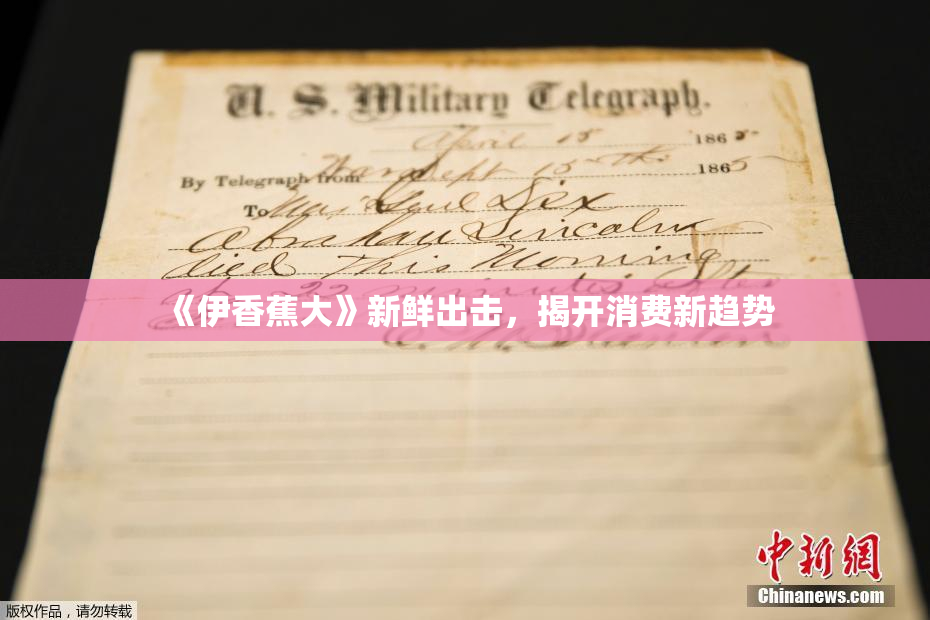 U. S. Military Telegraph.
April 15 1865
By Telegraph from War Dept 15th 1865
To Maj Genl Dix
Abraham Lincoln
died This Morning
at 22 minutes after
《伊香蕉大》新鲜出击，揭开消费新趋势
E. M. Stanton
中新网
Chinanews.com
版权作品，请勿转载